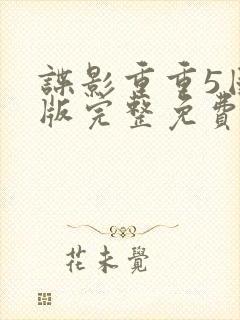 諜影重重5
版完整免費
花未覺